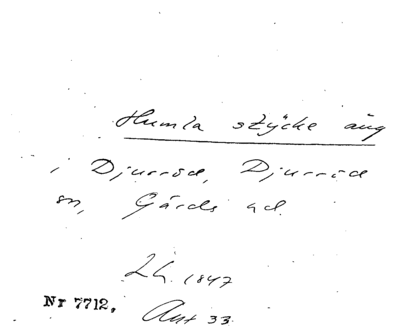 Humla stÿcke äng
i Djurröd, Djurröd
sn, Gärds hd.
Lh. 1847
Nr 7712. Akt 33.